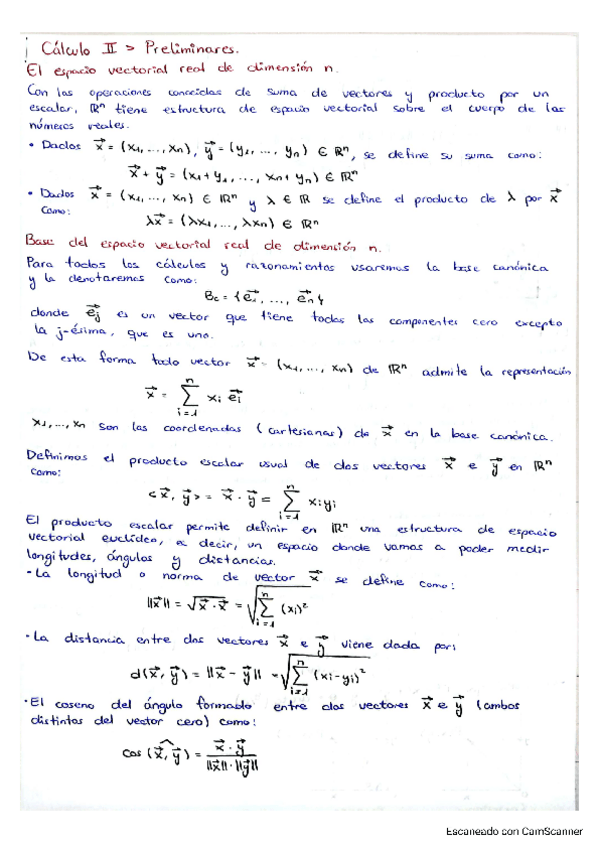 Cálculo II > Preliminares.
El espacio vectorial real de dimensión n.
Con las operaciones conocidas de suma de vectores y producto por un
escalar, ℝⁿ tiene estructura de espacio vectorial sobre el cuerpo de los
números reales.
• Dados x⃗ = (x₁, ..., xₙ), y⃗ = (y₁, ..., yₙ) ∈ ℝⁿ, se define su suma como:
x⃗ + y⃗ = (x₁ + y₁, ..., xₙ + yₙ) ∈ ℝⁿ
• Dados x⃗ = (x₁, ..., xₙ) ∈ ℝⁿ y λ ∈ ℝ se define el producto de λ por x⃗
como:
λx⃗ = (λx₁, ..., λxₙ) ∈ ℝⁿ
Base del espacio vectorial real de dimensión n.
Para todos los cálculos y razonamientos usaremos la base canónica
y la denotaremos como:
Bc = {e⃗₁, ..., e⃗ₙ}
donde e⃗ⱼ es un vector que tiene todas las componentes cero excepto
la j-ésima, que es uno.
De esta forma todo vector x⃗ = (x₁, ..., xₙ) de ℝⁿ admite la representación
x⃗ = ∑ⁿᵢ₌₁ xᵢ e⃗ᵢ
x₁, ..., xₙ son las coordenadas (cartesianas) de x⃗ en la base canónica.
Definimos el producto escalar usual de dos vectores x⃗ e y⃗ en ℝⁿ
como:
<x⃗, y⃗> = x⃗ · y⃗ = ∑ⁿᵢ₌₁ xᵢyᵢ
El producto escalar permite definir en ℝⁿ una estructura de espacio
vectorial euclídeo, es decir, un espacio donde vamos a poder medir
longitudes, ángulos y distancias.
• La longitud o norma de vector x⃗ se define como:
||x⃗|| = √(x⃗ · x⃗) = √(∑ⁿᵢ₌₁ (xᵢ)²)
• La distancia entre dos vectores x⃗ e y⃗ viene dada por:
d(x⃗, y⃗) = ||x⃗ − y⃗|| = √(∑ⁿᵢ₌₁ (xᵢ − yᵢ)²)
• El coseno del ángulo formado entre dos vectores x⃗ e y⃗ (ambos
distintos del vector cero) como:
cos (x⃗, y⃗) = (x⃗ · y⃗) / (||x⃗|| · ||y⃗||)
Escaneado con CamScanner